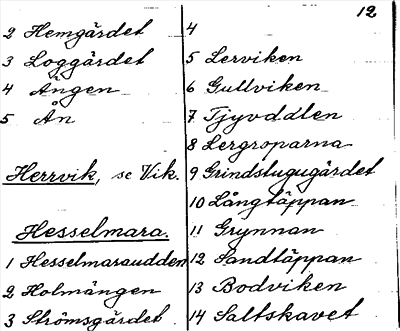 12
2 Hemgärdet
3 Loggärdet
4 Ängen
5 Ån
Herrvik, se Vik.
Hesselmara.
1 Hesselmaraudden
2 Holmängen
3 Strömsgärdet
4
5 Lerviken
6 Gullviken
7 Tjyvudden
8 Lergroparna
9 Grindstugugärdet
10 Långtäppan
11 Grynnan
12 Sandtäppan
13 Bodviken
14 Saltskavet